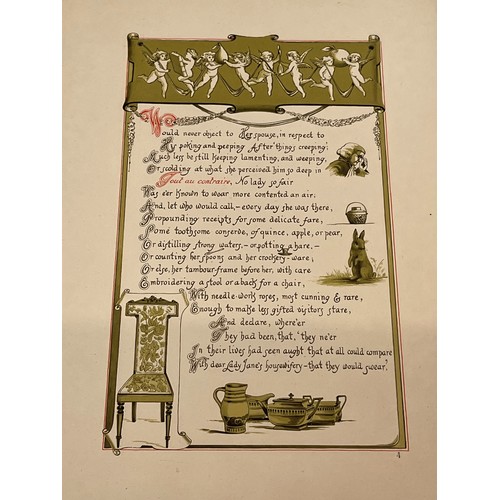 Would never object to Her spouse, in respect to
His poking and peeping After things creeping;
Much less be still keeping lamenting, and weeping,
Or scolding at what she perceived him so deep in
Tout au contraire, No lady so fair
Was e'er known to wear more contented an air;
And, let who would call,– every day she was there,
Propounding receipts for some delicate fare,
Some toothsome conserve, of quince, apple, or pear,
Or distilling strong waters,– or potting a hare,–
Or counting her spoons and her crockery-ware;
Or else, her tambour-frame before her, with care
Embroidering a stool or a back for a chair,
With needle-work roses, most cunning & rare,
Enough to make less gifted visitors stare,
And declare, where'er
They had been, that, 'they ne'er
In their lives had seen aught that at all could compare
With dear Lady Jane's housewifery–that they would swear.'
4